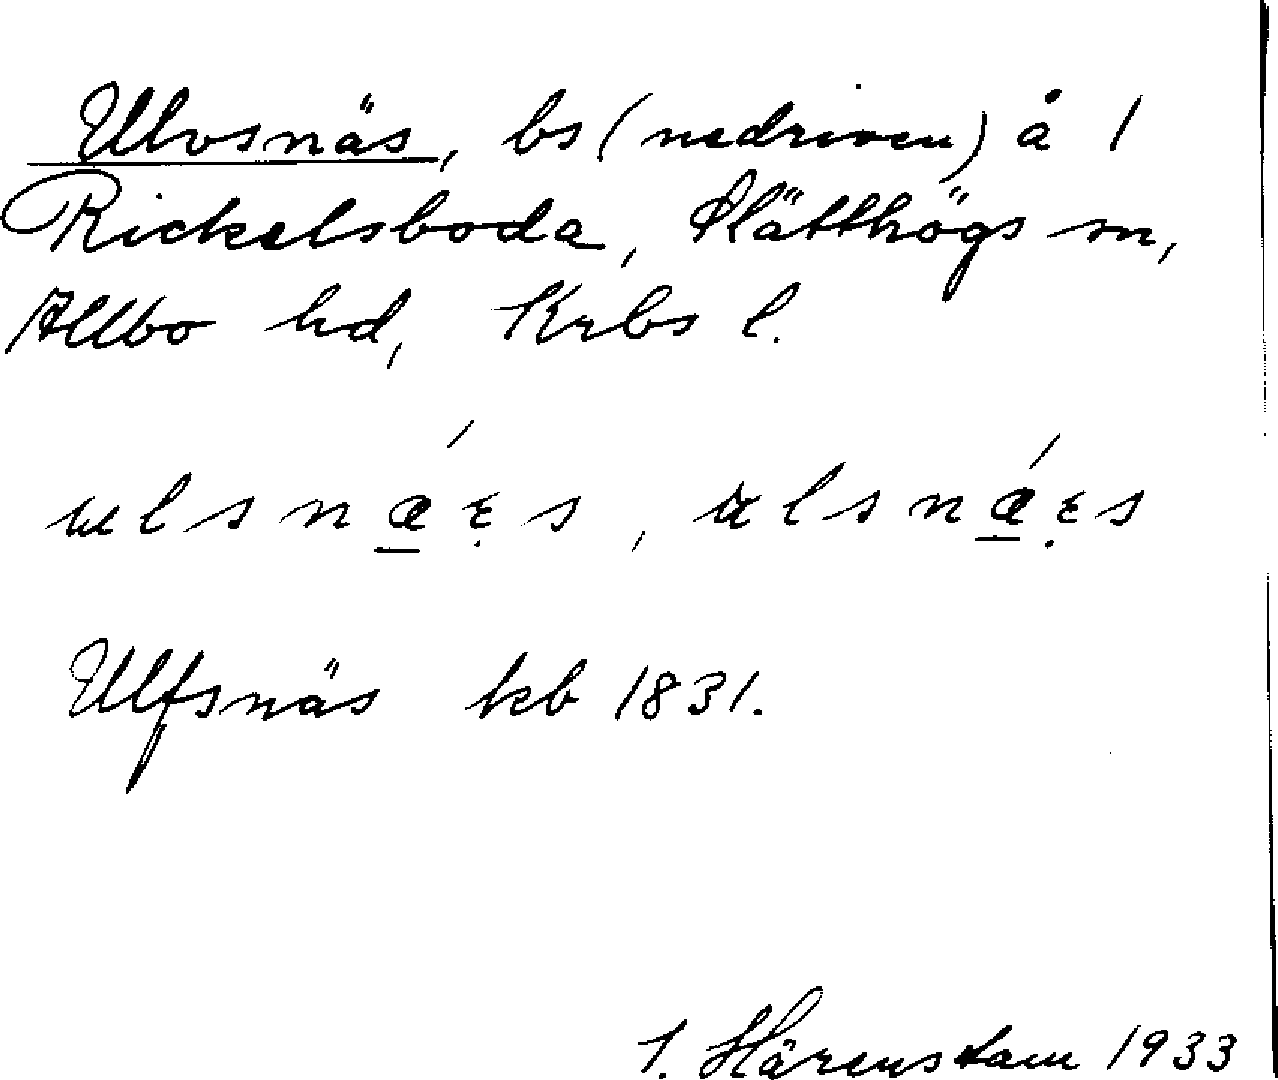 Ulvsnäs, bs (nedriven) å 1
Rickelsboda, Slätthögs sn,
Allbo hd, Krbs l.
Ulfsnäs kb 1831.
J. Härenstam 1933